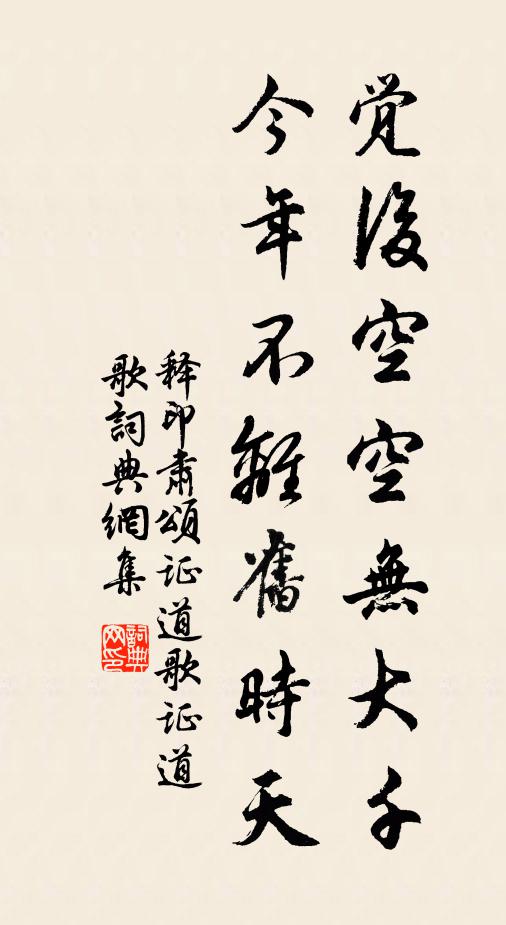 覚後空空無大千
今年不離舊時天
释印肃頌证道歌证道
歌詞典網集
詞典网印